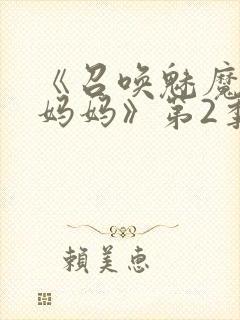 《召唤魅魔
妈妈》第2季
賴美惠